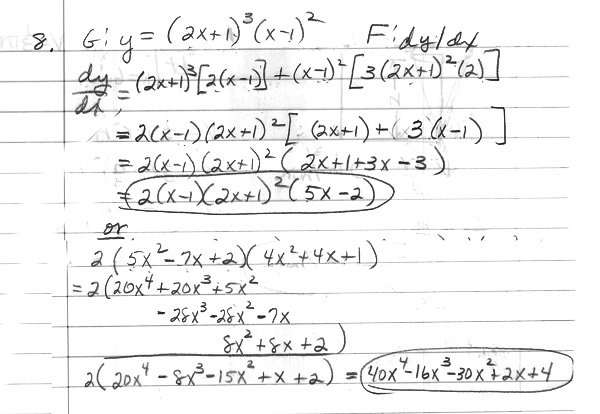 8. G: y = (2x+1)³(x-1)² F: dy/dx
dy/dx = (2x+1)³[2(x-1)] + (x-1)²[3(2x+1)²(2)]
= 2(x-1)(2x+1)²[(2x+1) + (3(x-1)]
= 2(x-1)(2x+1)²(2x+1+3x-3)
= 2(x-1)(2x+1)²(5x-2)
or
2(5x²-7x+2)(4x²+4x+1)
= 2(20x⁴+20x³+5x²
-28x³-28x²-7x
8x²+8x+2)
2(20x⁴-8x³-15x²+x+2) = 40x⁴-16x³-30x²+2x+4